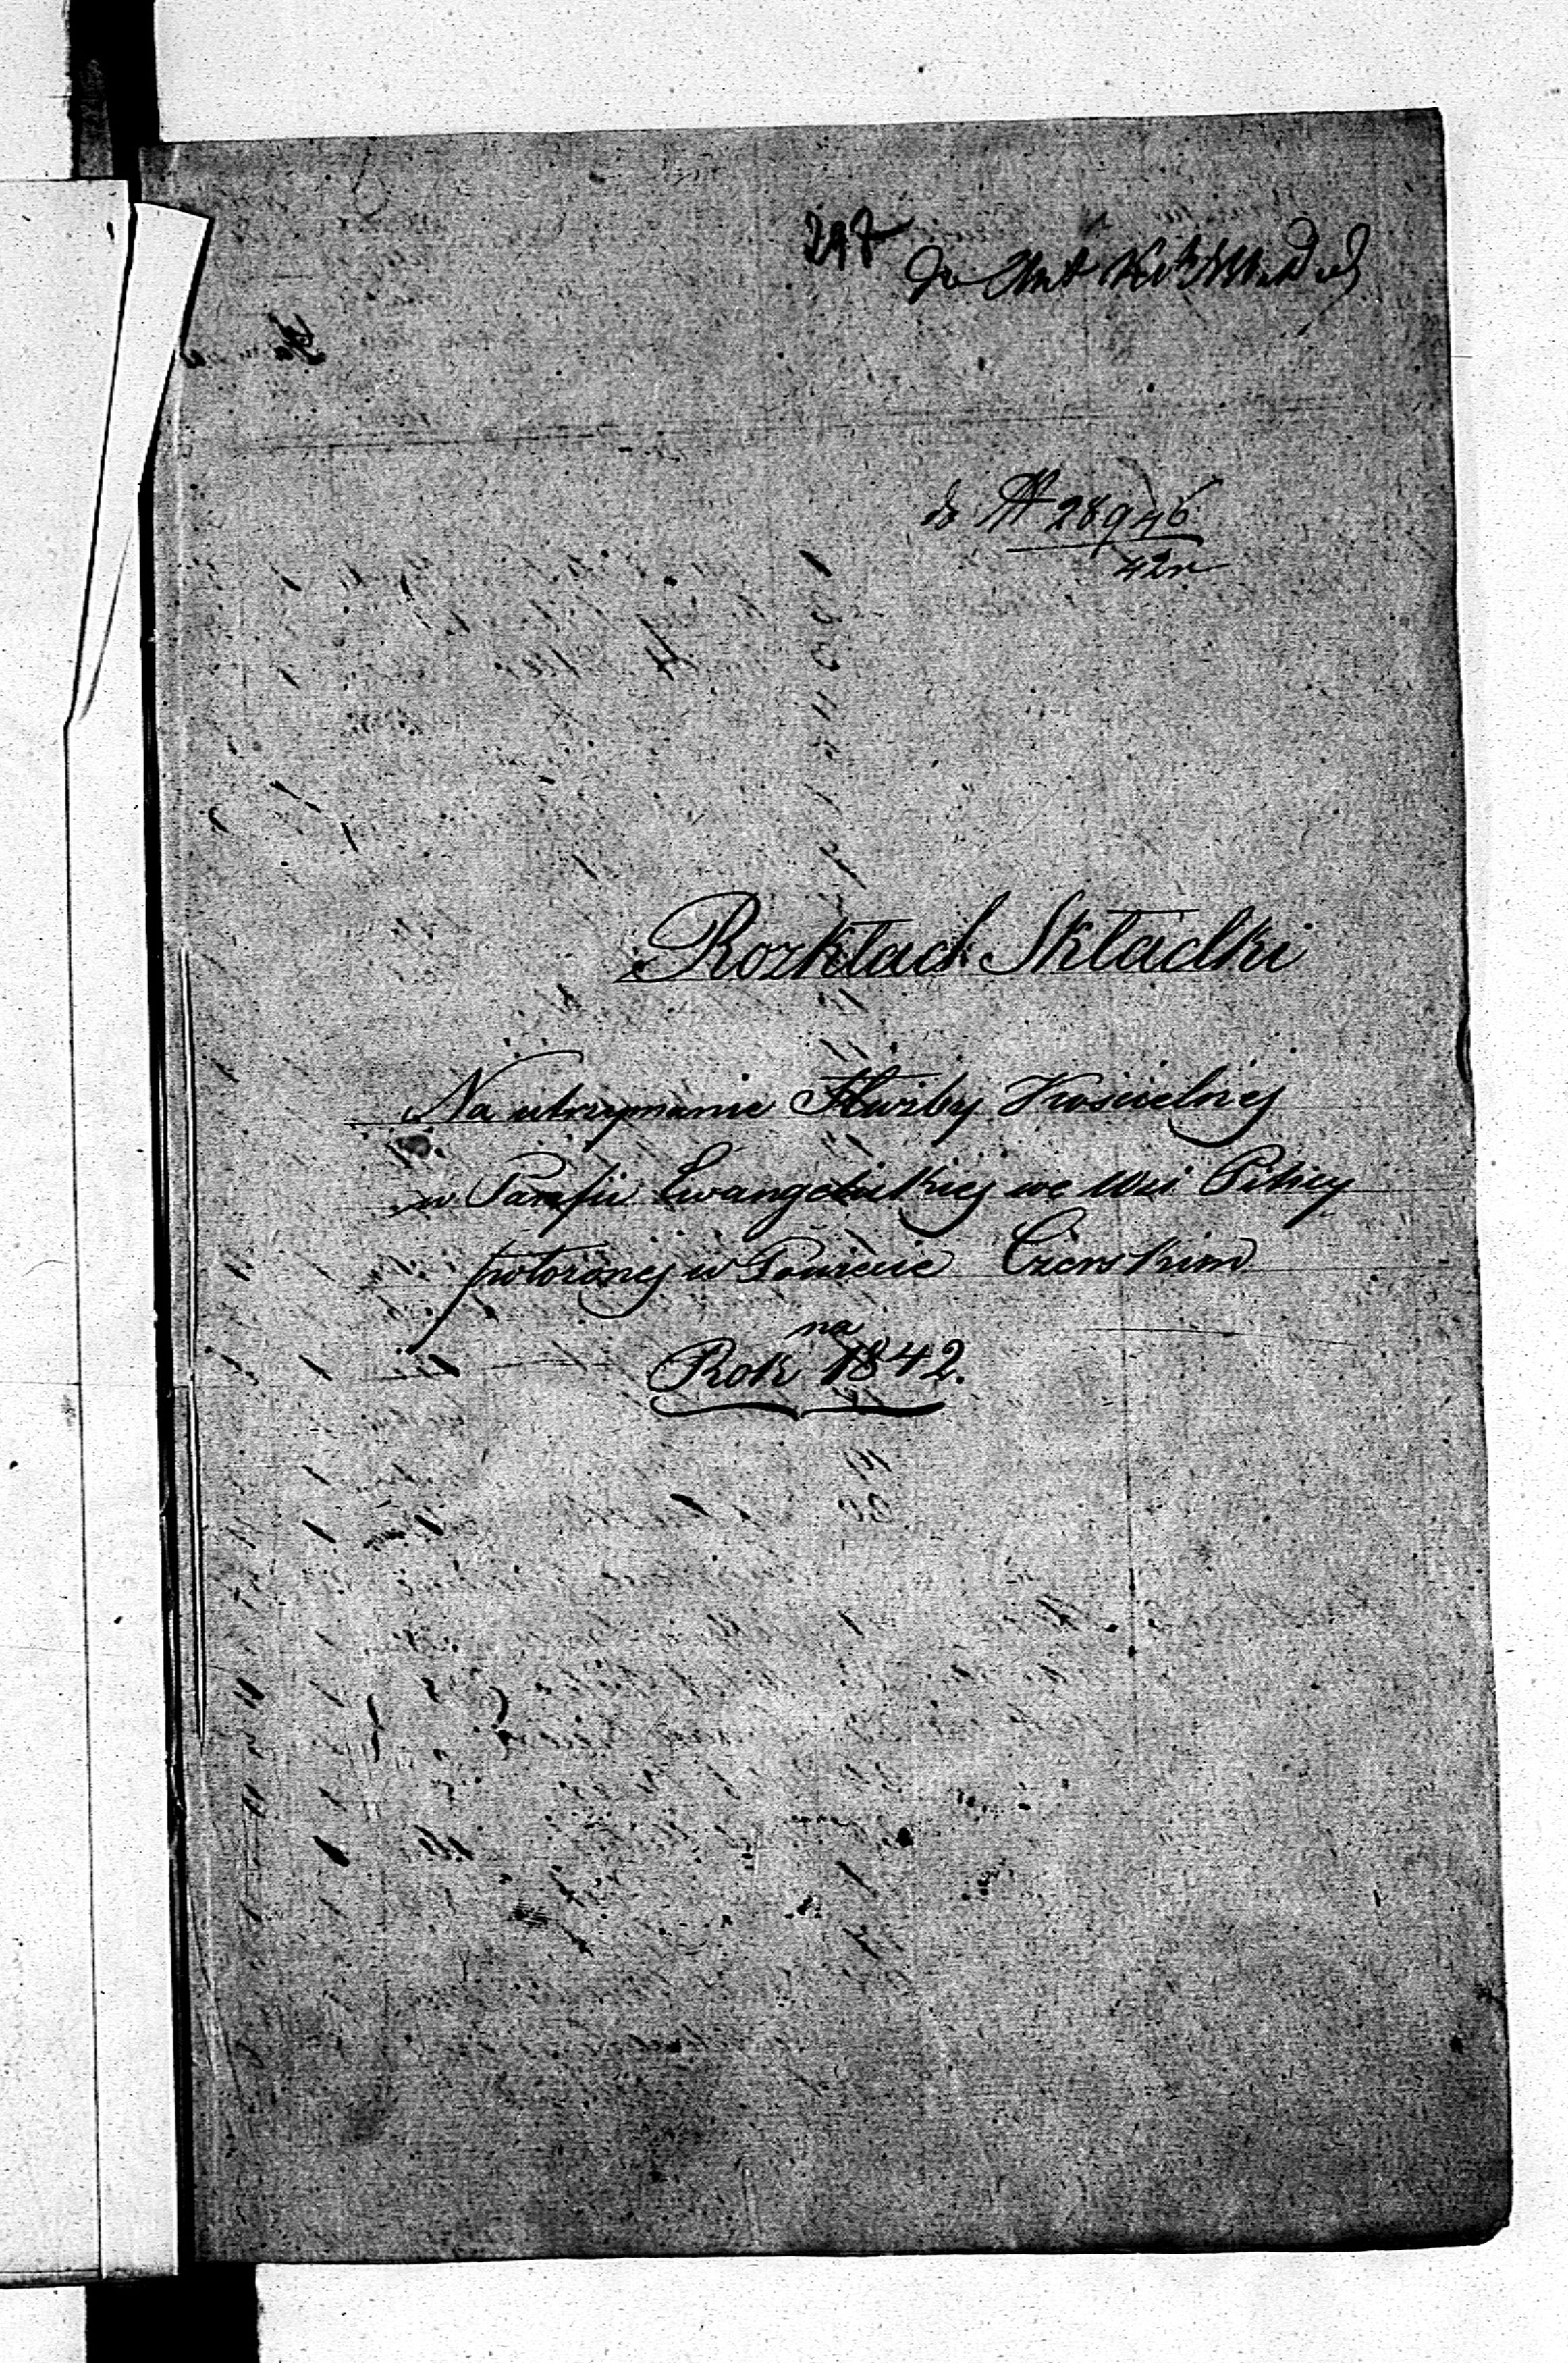 297
do N 28946
42 r
Rozkład Składki
Na utrzymanie Służby Kościelnej
w Parafii Ewangelickiej we Wsi Pilicy
położonej w Powiecie Czerskim
na
Rok 1842.